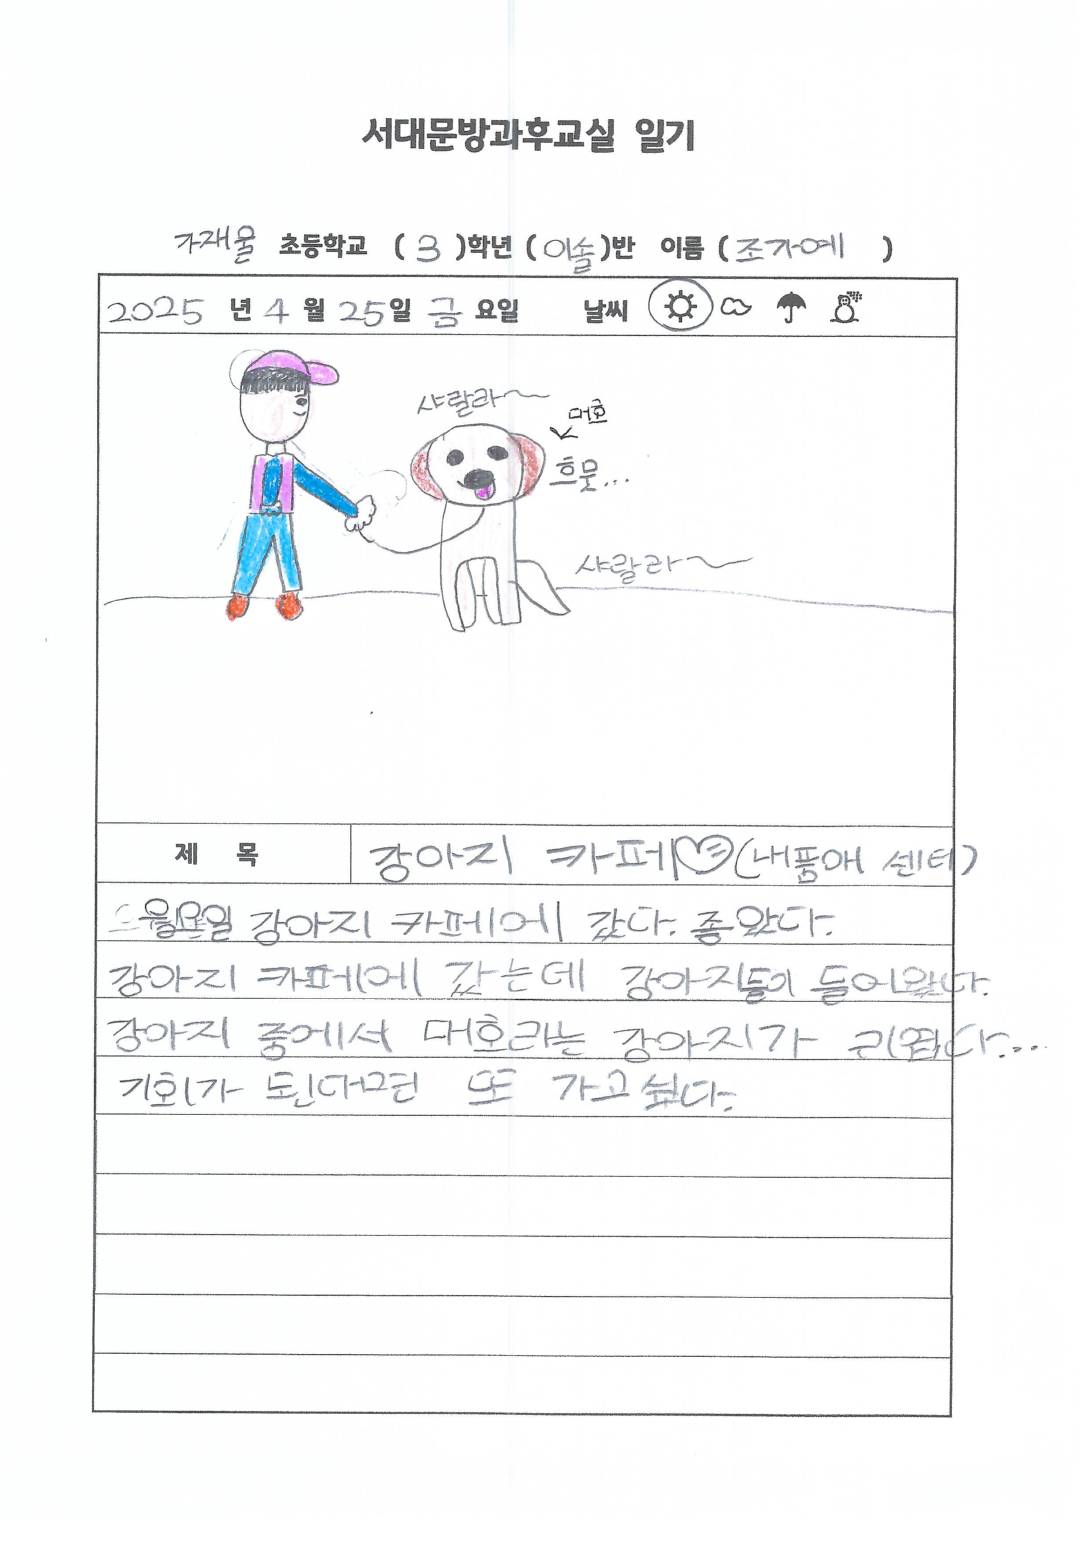 서대문방과후교실 일기
가재울 초등학교 ( 3 )학년 (이솔)반 이름 (조가예 )
2025 년 4 월 25일 금 요일 날씨
샤랄라~
대호
흐뭇...
샤랄라~
제 목 강아지 카페♡(내품애 센터)
월요일 강아지 카페에 갔다. 좋았다.
강아지 카페에 갔는데 강아지들이 들어왔다.
강아지 중에서 대호라는 강아지가 귀엽다...
기회가 된다면 또 가고 싶다.